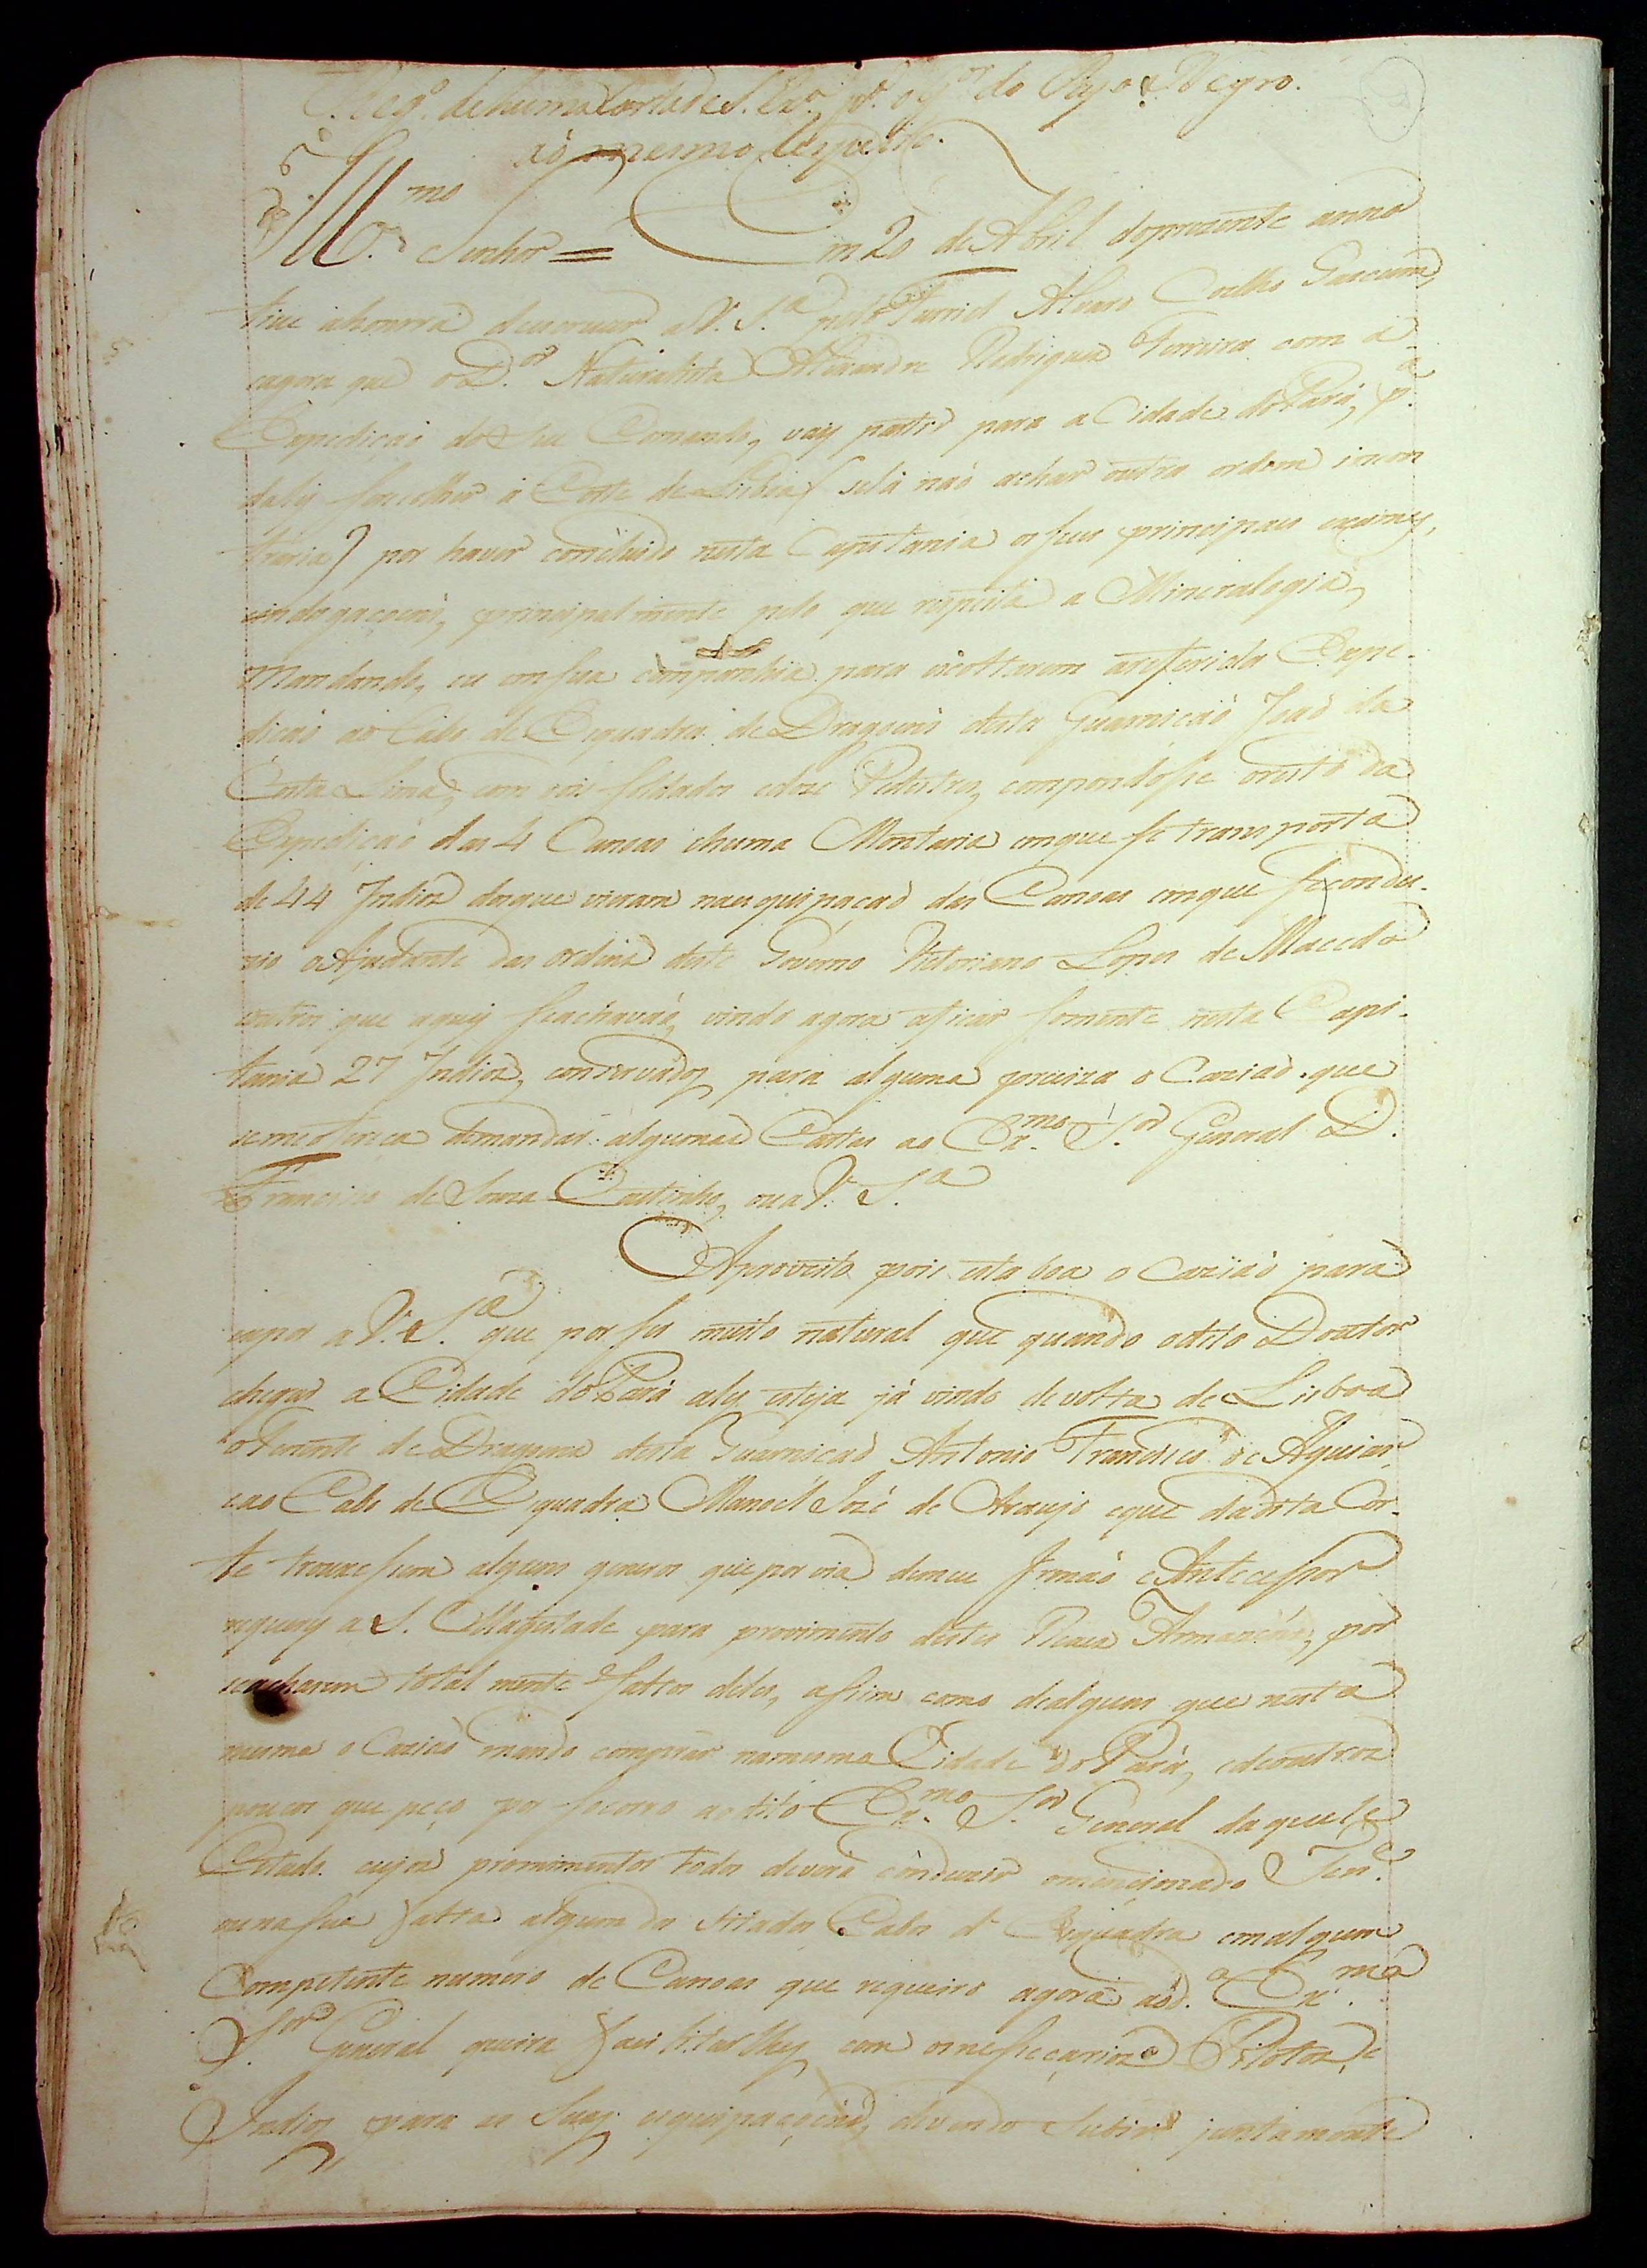 Reg.o de huma Carta de S. Ex.a p.a o G.or do Ryo Negro.
ao mesmo respeito.
Ill.mo Senhor = Em 20 de Abril do prezente anno
tive ahonrra de escrever a V. S.a pelo Furriel Alvaro Coelho
eagora que o D.or Naturalista Alexandre Rodrigues Ferreira com a
Expediçaõ do seu Comando, vay partir para a Cidade do Pará, p.a
daly se recolher á Corte de Lisboa (se lá naõ achar outra ordem incon
traria) por haver concluido nesta Capitania os seus principaes exames,
eindagaçoens, principalmente pelo que respeita a Mineralogia,
Mandando, eu em sua companhia para escoltarem areferida Expe-
diçaõ ao Cabo de Esquadra de Dragoens desta Guarniçaõ Joaõ da
Costa Lima, com seis soldados edoze Pedestres, compondosse oresto da
Expediçaõ das 4 Canoas ehuma Montaria emque se transporta
de 44 Indios dosque vieram naesquipaçaõ das Canoas emque se condu-
zio o Ajudante das ordens deste Governo Victoriano Lopes de Macedo
eoutros que aquy seachavaõ, vindo agora aficar somente nesta Capi-
tania 27 Indios, conservados para alguma precisa o Caziaõ que
semeofereça demandar algumas Cartas ao Ex.mo S.or General D.
Francisco de Souza Coutinho, oua V. S.a
Aproveito pois esta boa o Caziaõ para
expor a V. S.a que por ser muito natural que quando odito Doutor
chegar a Cidade do Pará aly esteja já vindo de volta de Lisboa
oTenente de Dragoens desta Guarniçaõ Antonio Francisco de Aguiar,
eao Cabo de Esquadra Manoel Jozé de Araujo eque dadita Cor-
te trouxessem alguns generos que por via demeu Irmaõ eAntecessor
requery a S. Magestade para provimento destes Reaes Armazens, por
seacharem total mente faltos deles, assim como dealguns que nesta
mesma o Caziaõ mando comprar namesma Cidade do Pará, edeoutros
poucos que peço por socorro aodito Ex.mo S.or General daquele
Estado cujos provimentos todos deverá conduzir omencionado Ten.e
ouna sua falta algum dos sitados Cabos d' Esquadra emalgum
Competente numero de Canoas que requeiro agora aod.o Ex.mo
S.or General queira facilitarlhes, com osnesseçarios Pilotos, e
Indios para as suas esquipaçoens, devendo subir juntamente